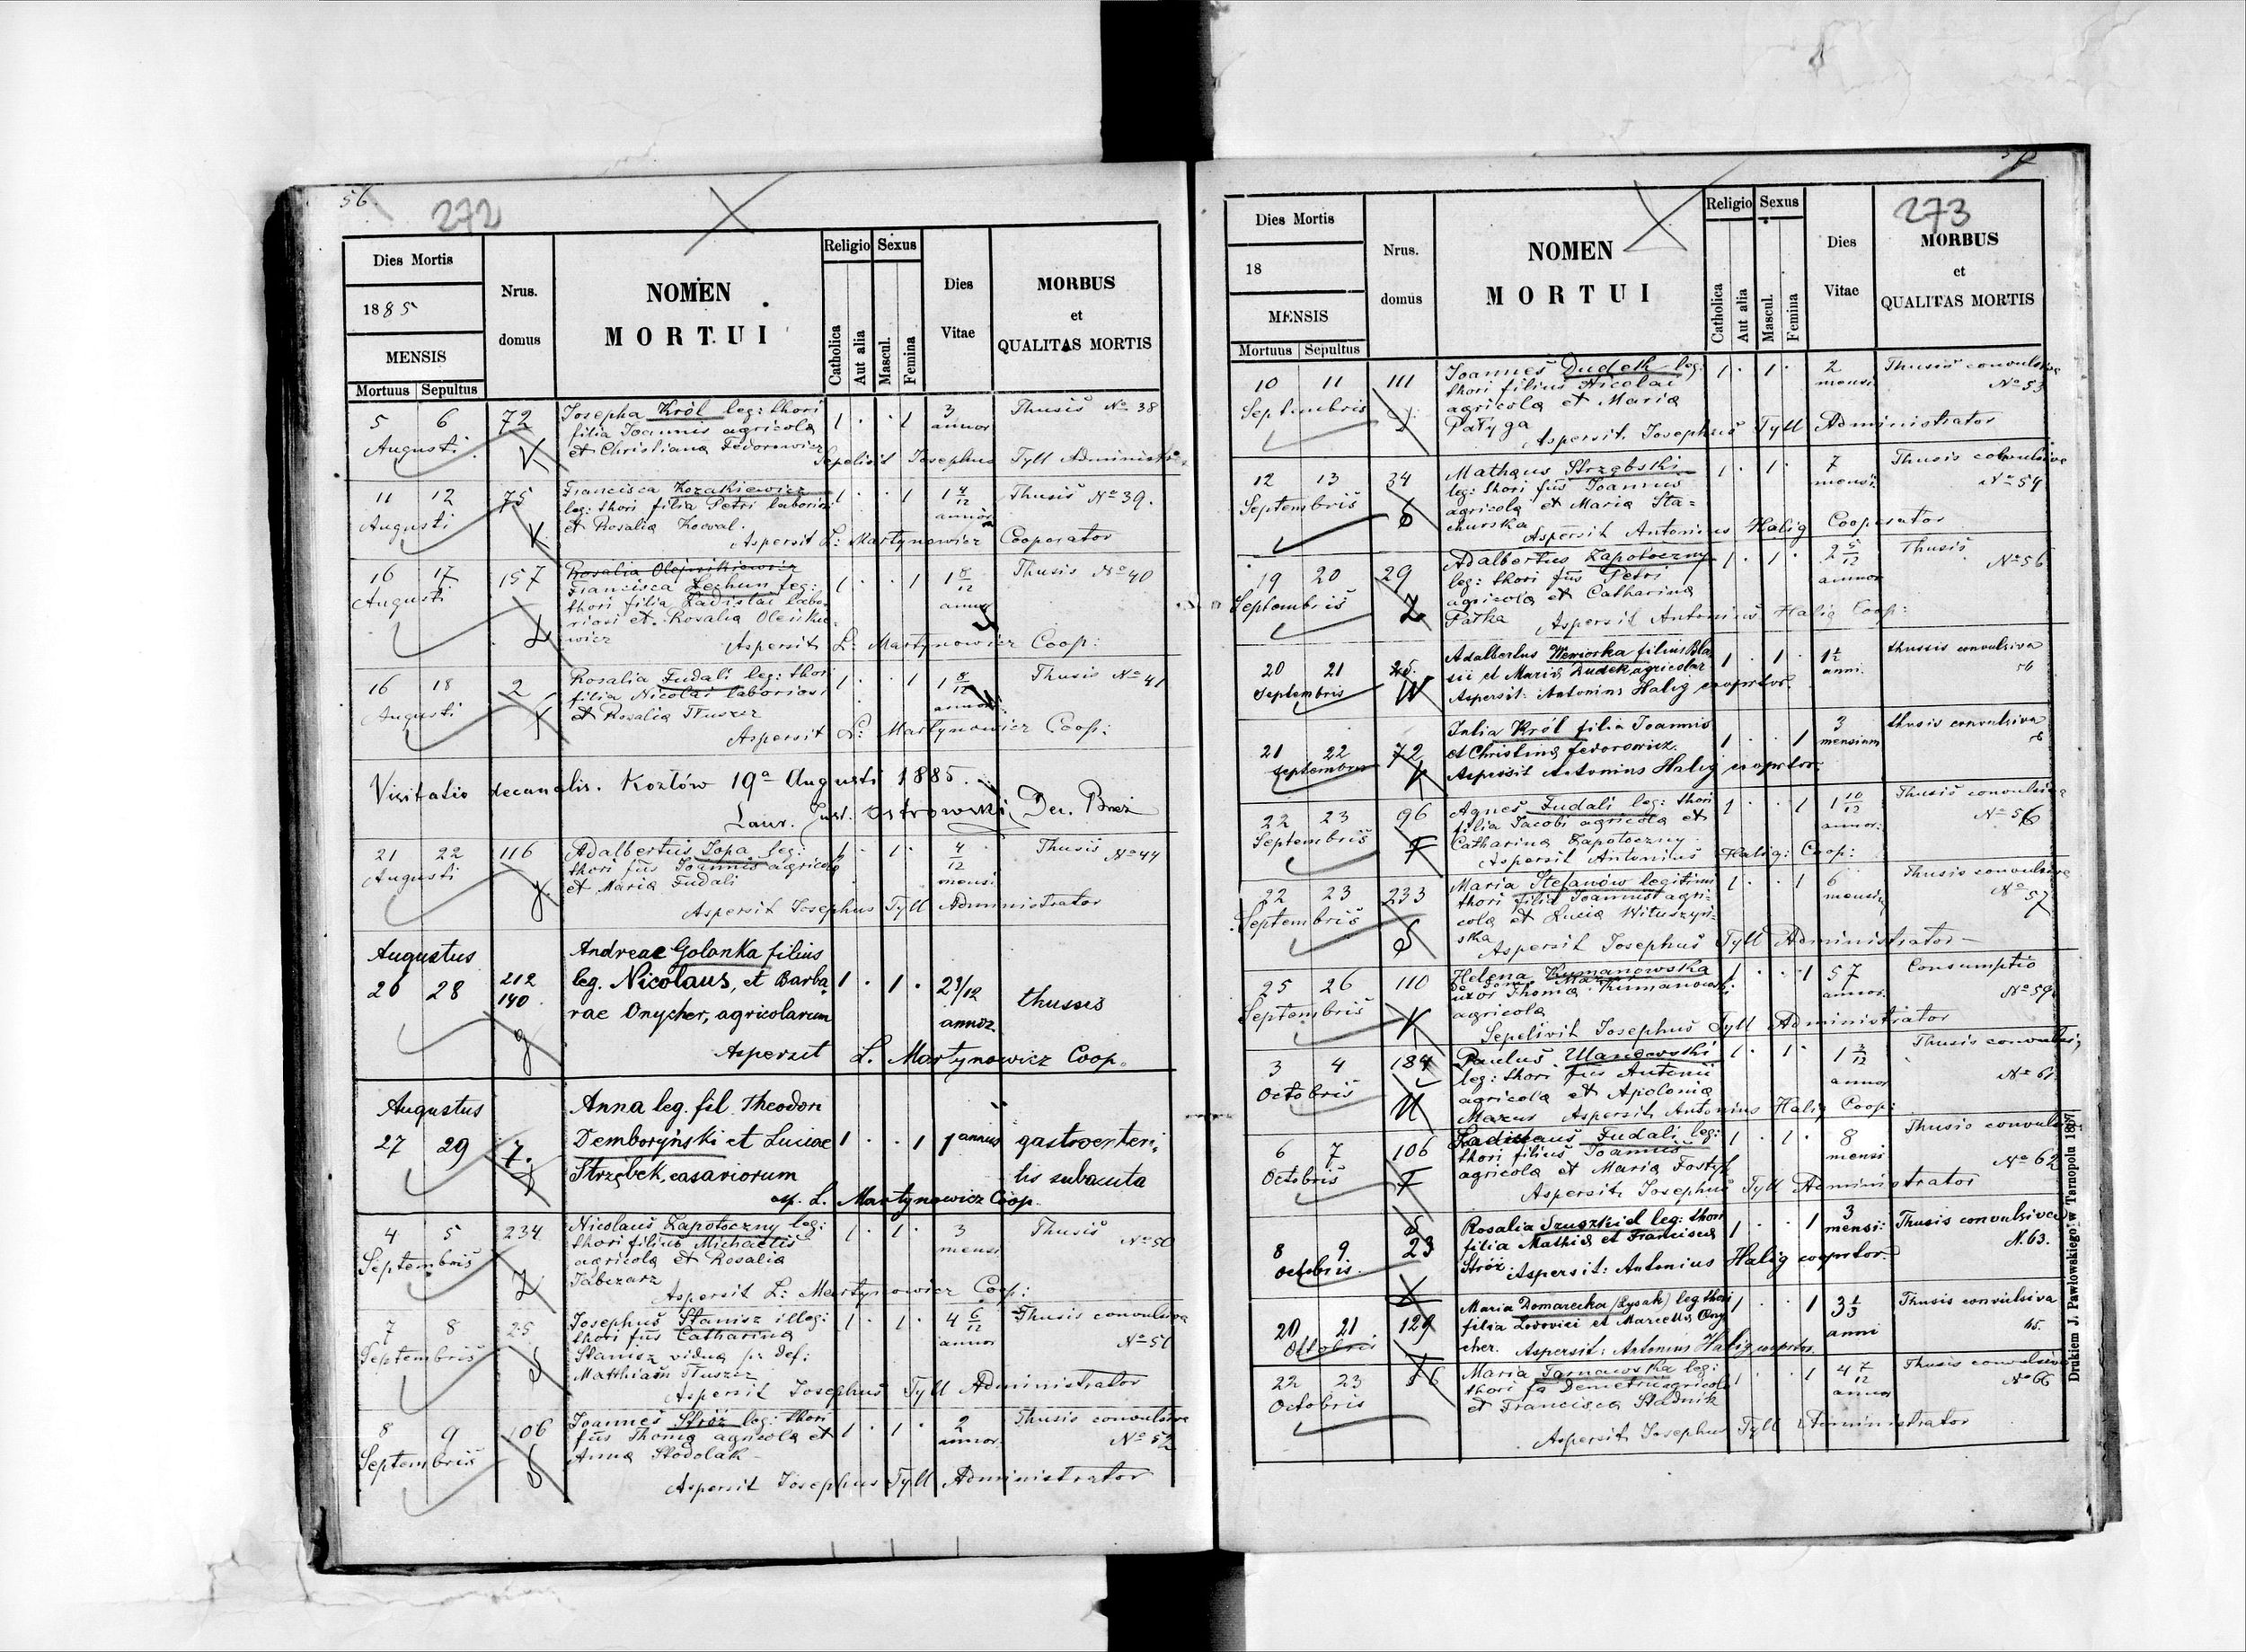 56
272
Dies Mortis
1885
MENSIS
Mortuus Sepultus
Nrus. domus
NOMEN
MORTUI
Religio
Catholica
Aut alia
Sexus
Mascul.
Femina
Dies Vitae
MORBUS
et
QUALITAS MORTIS
5 6 72 Josepha Król leg: thori 1 . . 1 3 Thusis No 38
Augusti filia Joannis agricola annor
et Christiana Fedorowicz
Sepelivit Josephus Tyll Administrator
11 12 75 Francisca Kozakiewicz 1 . . 1 1 4/12 Thusis No 39.
Augusti leg: thori filia Petri laborio: annor
et Rosalia Kowal.
Aspersit L: Martynowicz Cooperator
16 17 157 Rosalia Olejnikiewicz
Augusti Francisca Lechun leg: 1 . . 1 1 8/12 Thusis No 40
thori filia Ladislai labo annor
riosi et Rosalia Olenke
wicz Aspersit L: Martynowicz Coop:
16 18 2 Rosalia Fudali leg: thori 1 . . 1 1 8/12 Thusis No 41
Augusti filia Nicolai laboriosi annor
et Rosalia Tłuszcz
Aspersit L: Martynowicz Coop:
Visitatio decanalis. Kozłów 19a Augusti 1885.
Laur. Just. Ostrowski, Dec. Breż
21 22 116 Adalbertus Łopa leg: 1 . 1 . 4/12 Thusis No 44
Augusti thori fius Joannis agricola mensi
et Maria Fudali
Aspersit Josephus Tyll Administrator
Augustus Andreae Golanka filius
26 28 212 leg. Nicolaus, et Barba 1 . 1 . 2 1/12 thusses
140 rae Onycher, agricolarum annor
Aspersit L. Martynowicz Coop.
Augustus Anna leg. fil. Theodori
27 29 7. Demboryński et Luciae 1 . . 1 1 annus gastroenteri
Strzębek, casariorum tis subacuta
asp. L. Martynowicz Coop.
4 5 234 Nicolaus Zapotoczny leg: 1 . 1 . 3 Thusis No 50
Septembris thori filius Michaelis mensi
agricola et Rosalia
Tabczarz Aspersit L: Martynowicz Coop:
7 8 25 Josephus Stanisz illeg: 1 . 1 . 4 6/12 Thusis convulsiva
Septembris thori fius Catharina annor No 51
Stanisz vidua p: def:
Matthiam Tłuszcz
Aspersit Josephus Tyll Administrator
8 9 106 Joannes Stróż leg: thori 1 . 1 . 2 Thusis convulsiva
Septembris fius Thoma agricola et annor. No 52
Anna Stodolak
Aspersit Josephus Tyll Administrator
57
273
Dies Mortis
18
MENSIS
Mortuus Sepultus
Nrus. domus
NOMEN
MORTUI
Religio
Catholica
Aut alia
Sexus
Mascul.
Femina
Dies Vitae
MORBUS
et
QUALITAS MORTIS
10 11 111 Joannes Dudek leg: 1 . 1 . 2 Thusis convulsiva
Septembris thori filius Nicolai mensi No 53
agricola et Maria
Pałyga Aspersit Josephus Tyll Administrator
12 13 34 Mathaus Strzębski 1 . 1 . 7 Thusis convulsiva
Septembris leg: thori fius Joannis mensi: No 54
agricola et Maria Sta=
churska Aspersit Antonius Halig Cooperator
19 20 29 Adalbertus Zapotoczny 1 . 1 . 2 5/12 Thusis
Septembris leg: thori fius Petri annor No 56
agricola et Catharina
Fałka Aspersit Antonius Halig Coop:
20 21 Adalbertus Wewiorka filius Bla 1 . 1 . 1 1/2 thussis convulsiva
Septembris sii et Maria Dudek agricolar anni. 56
Aspersit: Antonius Halig cooprtor.
21 22 72 Julia Król filia Joannis 1 . . 1 3 thusis convulsiva
septembris et Christina Fedorowicz. mensium
Aspersit Antonius Halig cooprtor.
22 23 96 Agnes Fudali leg: thori 1 . . 1 1 10/12 Thusis convulsiva
Septembris filia Jacobi agricola et annor: No 56
Catharina Zapotoczny
Aspersit Antonius Halig: Coop:
22 23 233 Maria Stefanów legitimi 1 . . 1 6 Thusis convulsiva
Septembris thori filia Joannis agri= mensiu No 57
cola et Lucia Wituszyń=
ska Aspersit Josephus Tyll Administrator
25 26 110 Helena Rymanowska 1 . . 1 57 Consumptio
Septembris uxor Thoma Rumanowski annor. No 59
agricola
Sepelivit Josephus Tyll Administrator
3 4 184 Paulus Ulanowski 1 . 1 . 1 3/12 Thusis convulsi:
Octobris leg: thori fius Antonii annor No 61
agricola et Apolonia
Mazur Aspersit Antonius Halig Coop:
6 7 106 Ladislaus Fudali leg: 1 . 1 . 8 Thusis convulsi
Octobris thori filius Joannis mensi No 62
agricola et Maria Fostyk
Aspersit Josephus Tyll Administrator
8 9. 23 Rosalia Szuszkiel leg: thori 1 . . 1 3 mensi: Thusis convulsiva
octobris. filia Mathia et Francisca N. 63.
Stróż. Aspersit: Antonius Halig cooprtor.
20 21 129 Maria Domarecka (Łysak) leg thori 1 . . 1 3 1/3 Thusis convulsiva
Octobris filia Lodovici et Marcella Ony anni 65.
cher. Aspersit: Antonius Halig cooprtor.
22 23 Maria Tarnawska leg: 1 . . 1 4 7/12 Thusis convulsiva
Octobris thori fa Demetrii agricola annor No 66
et Francisca Stadnik
Aspersit Josephus Tyll Administrator
Drukiem J. Pawłowskiego w Tarnopolu 1867